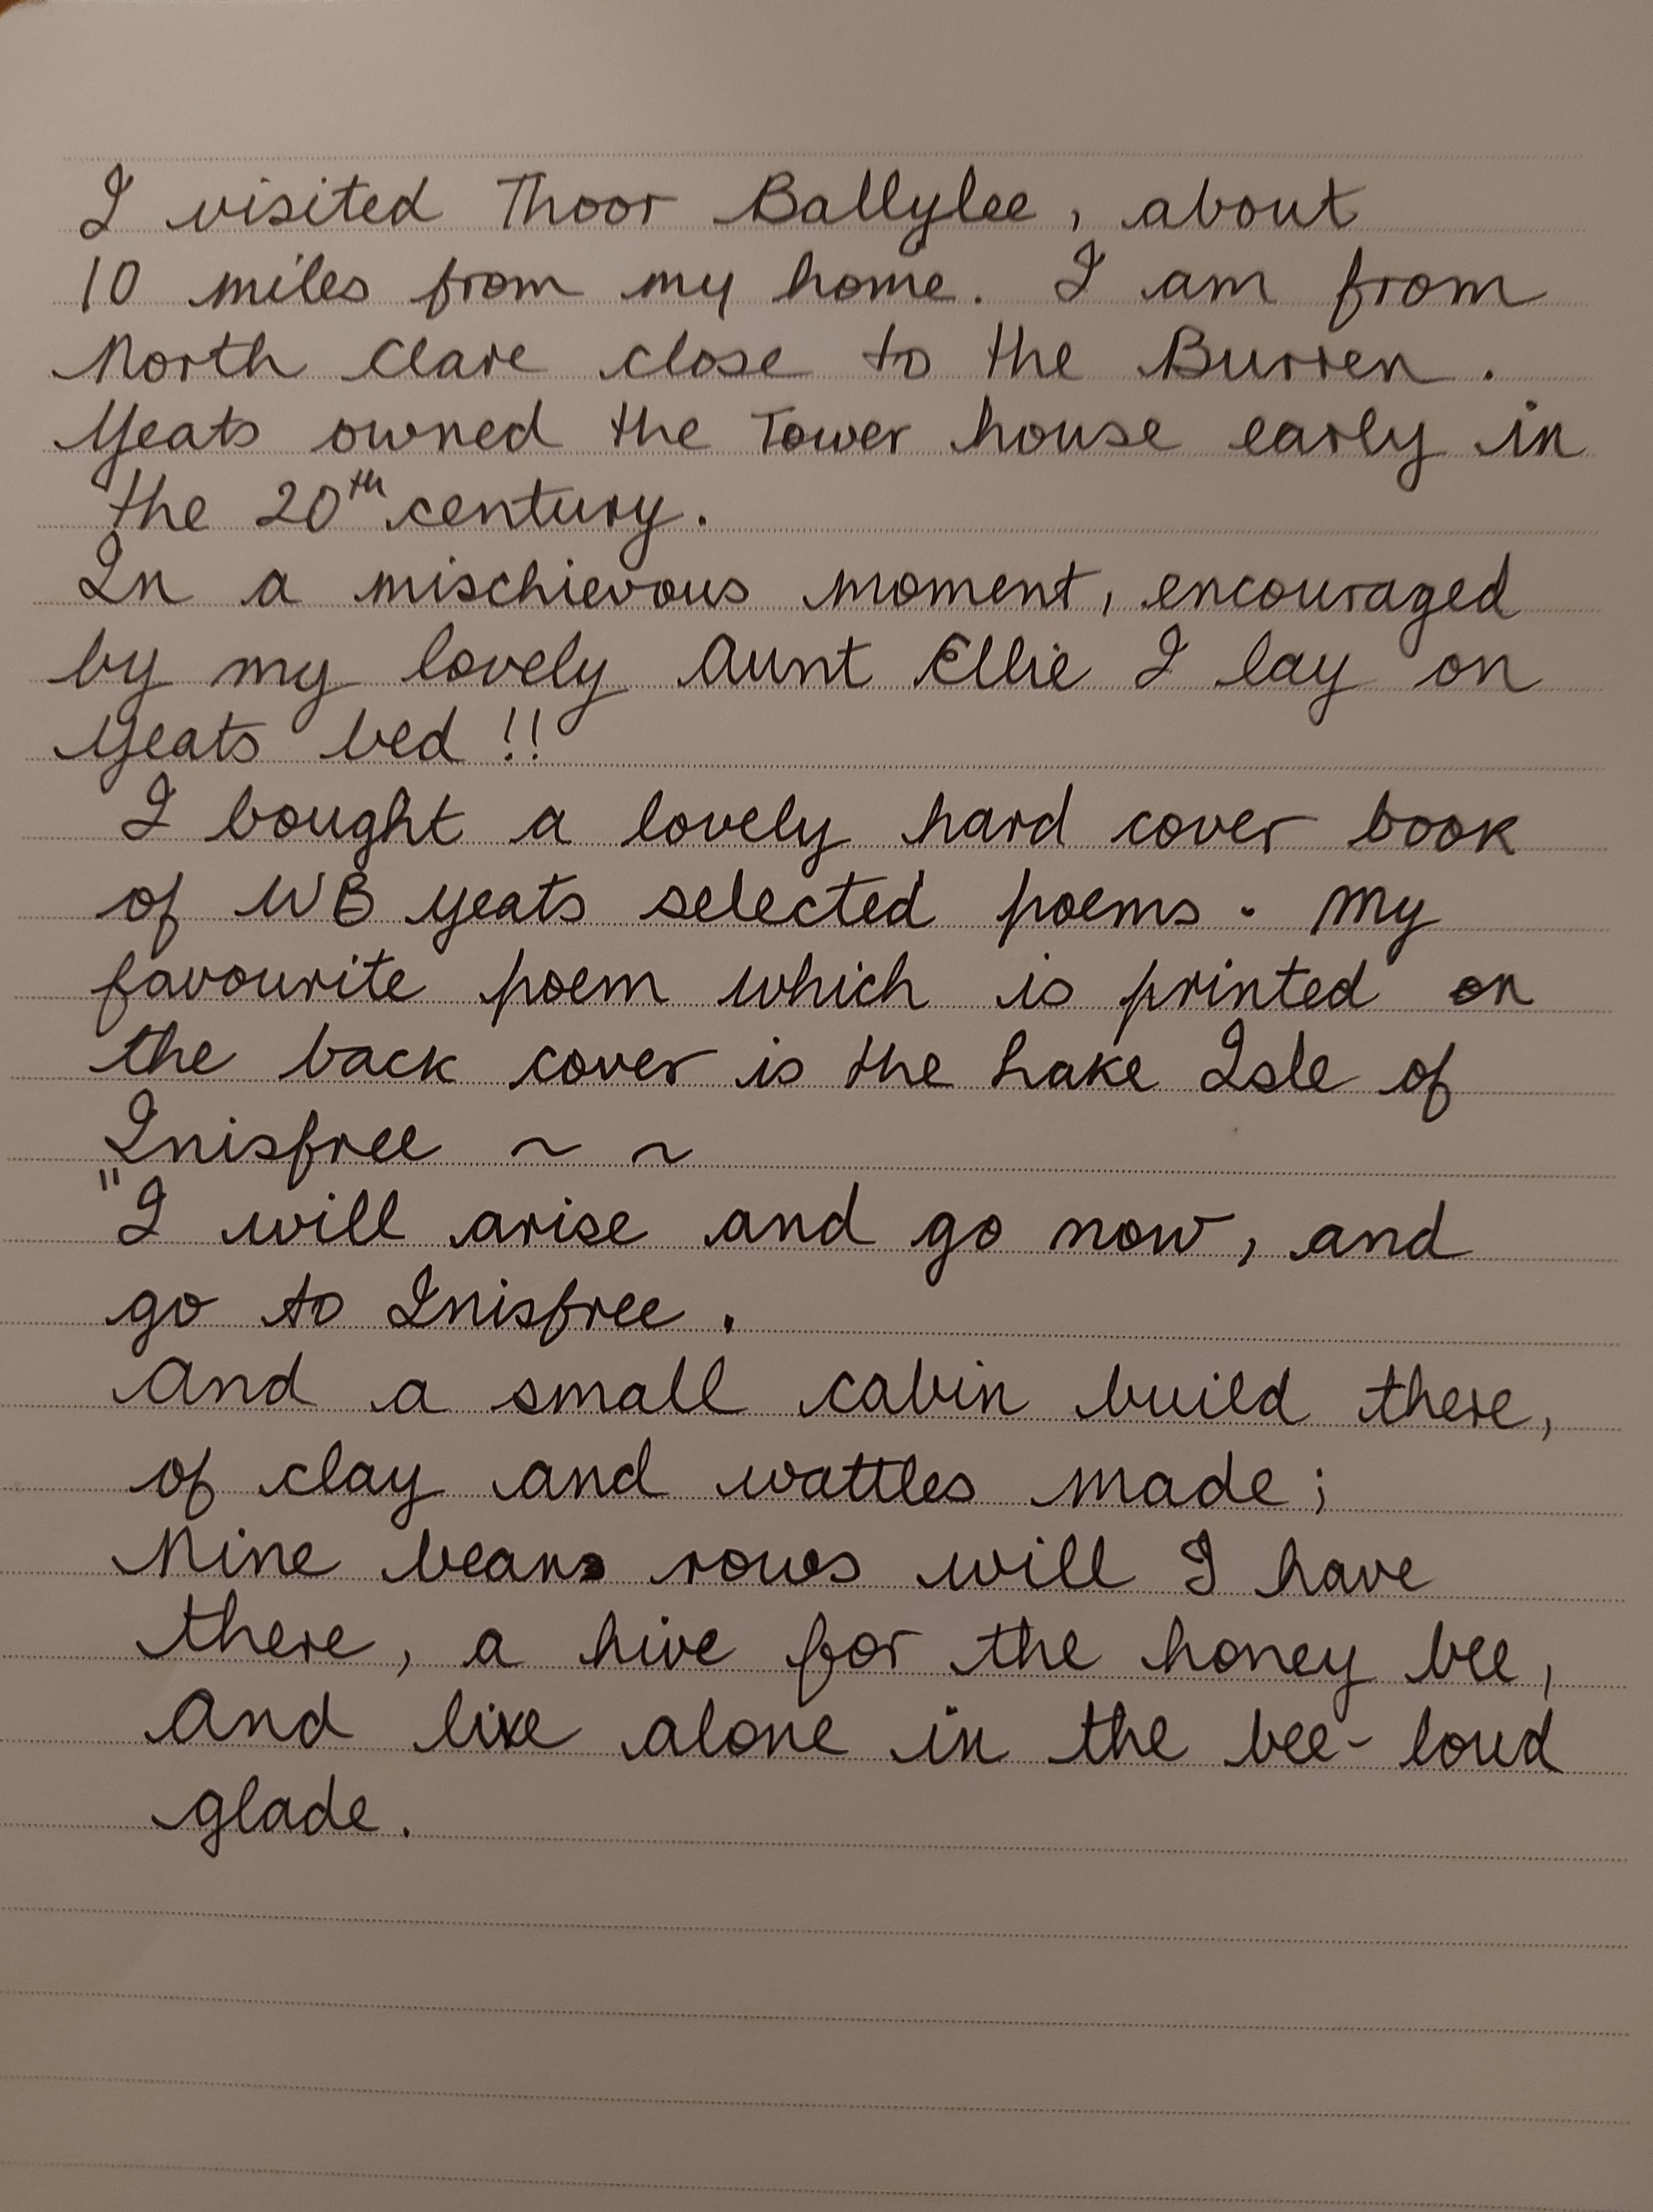 I visited Thoor Ballylee, about
10 miles from my home. I am from
North Clare close to the Burren.
Yeats owned the Tower house early in
the 20th century.
In a mischievous moment, encouraged
by my lovely Aunt Ellie I lay on
Yeats bed !!
I bought a lovely hard cover book
of WB Yeats selected poems. My
favourite poem which is printed on
the back cover is the Lake Isle of
Inisfree ~ ~
"I will arise and go now, and
go to Inisfree.
And a small cabin build there,
of clay and wattles made;
Nine beans rows will I have
there, a hive for the honey bee,
And live alone in the bee-loud
glade.